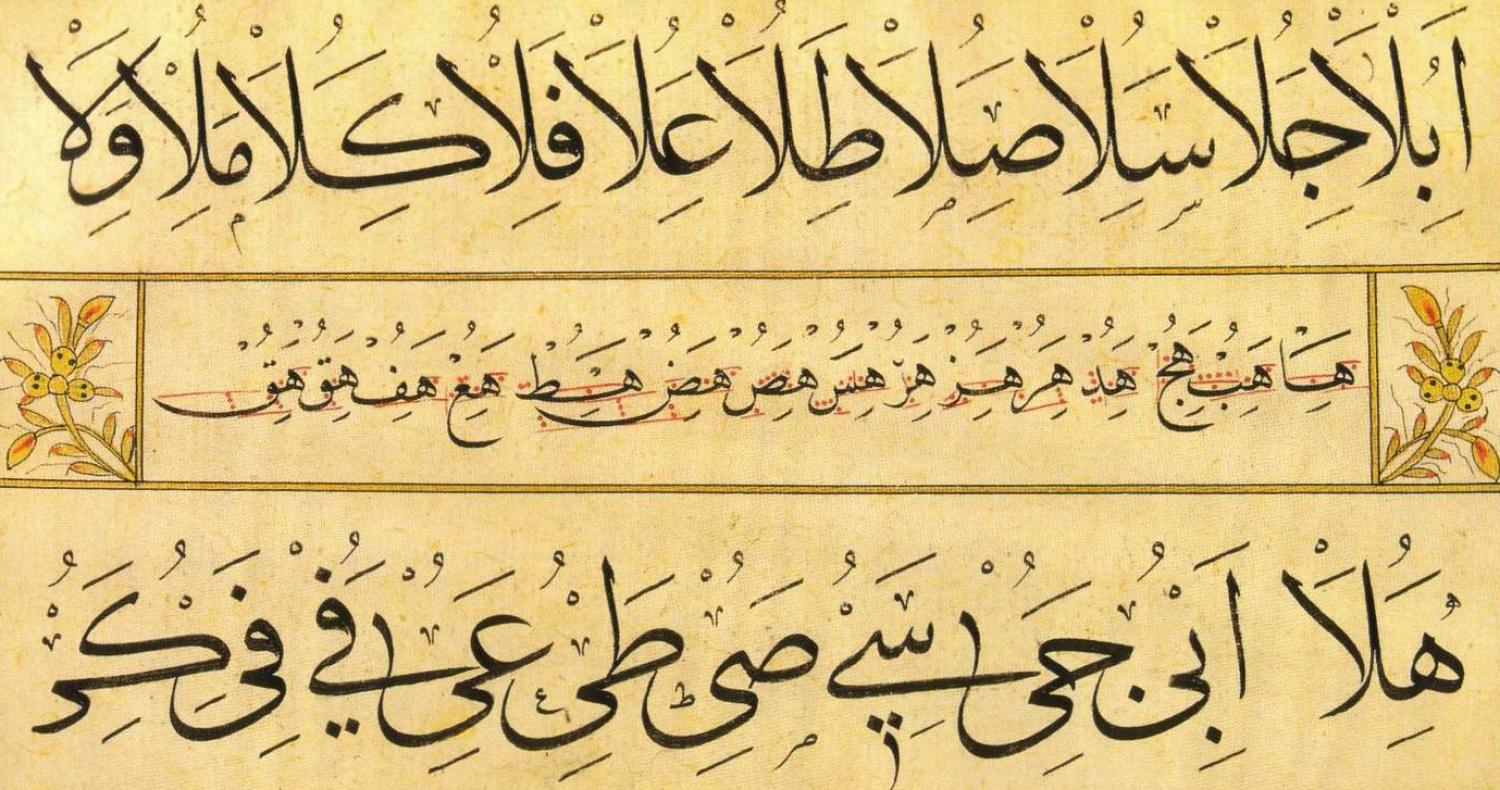 ا بلا جلا سلا صلا طلا علا فلا كلا ملا ولا
ها هب هج هد هر هر هر هس هص هص هط هع هف هق هق
هلا ا بى حى سے صى طى عى فے فى كر